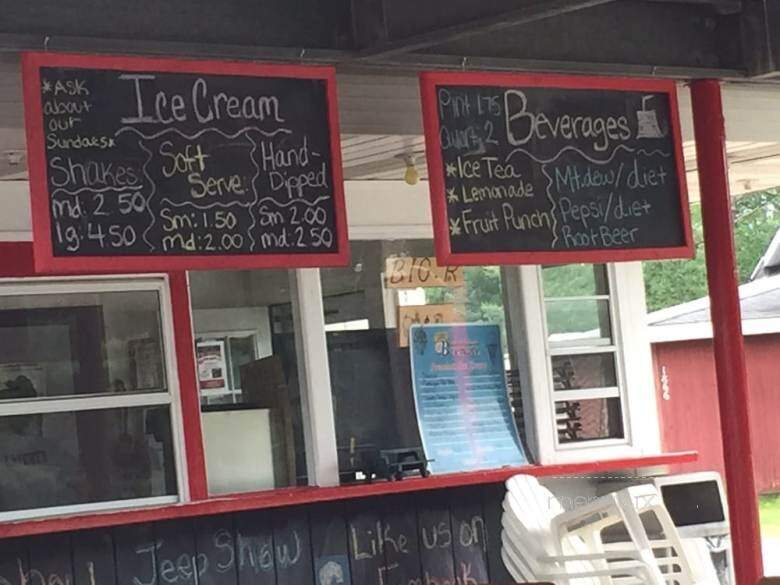 *ASK
about
our
Sundaes*
Ice Cream
Shakes
md. 2 50
lg: 4 50
Soft
Serve:
Sm: 1.50
md: 2.00
Hand-
Dipped
Sm 2.00
md: 2 50
Pint 1.75
Quart 2
Beverages
*Ice Tea
*Lemonade
*Fruit Punch
Mt.dew/diet
Pepsi/diet
Root Beer
BIG.R
Jeep Show
Like us on